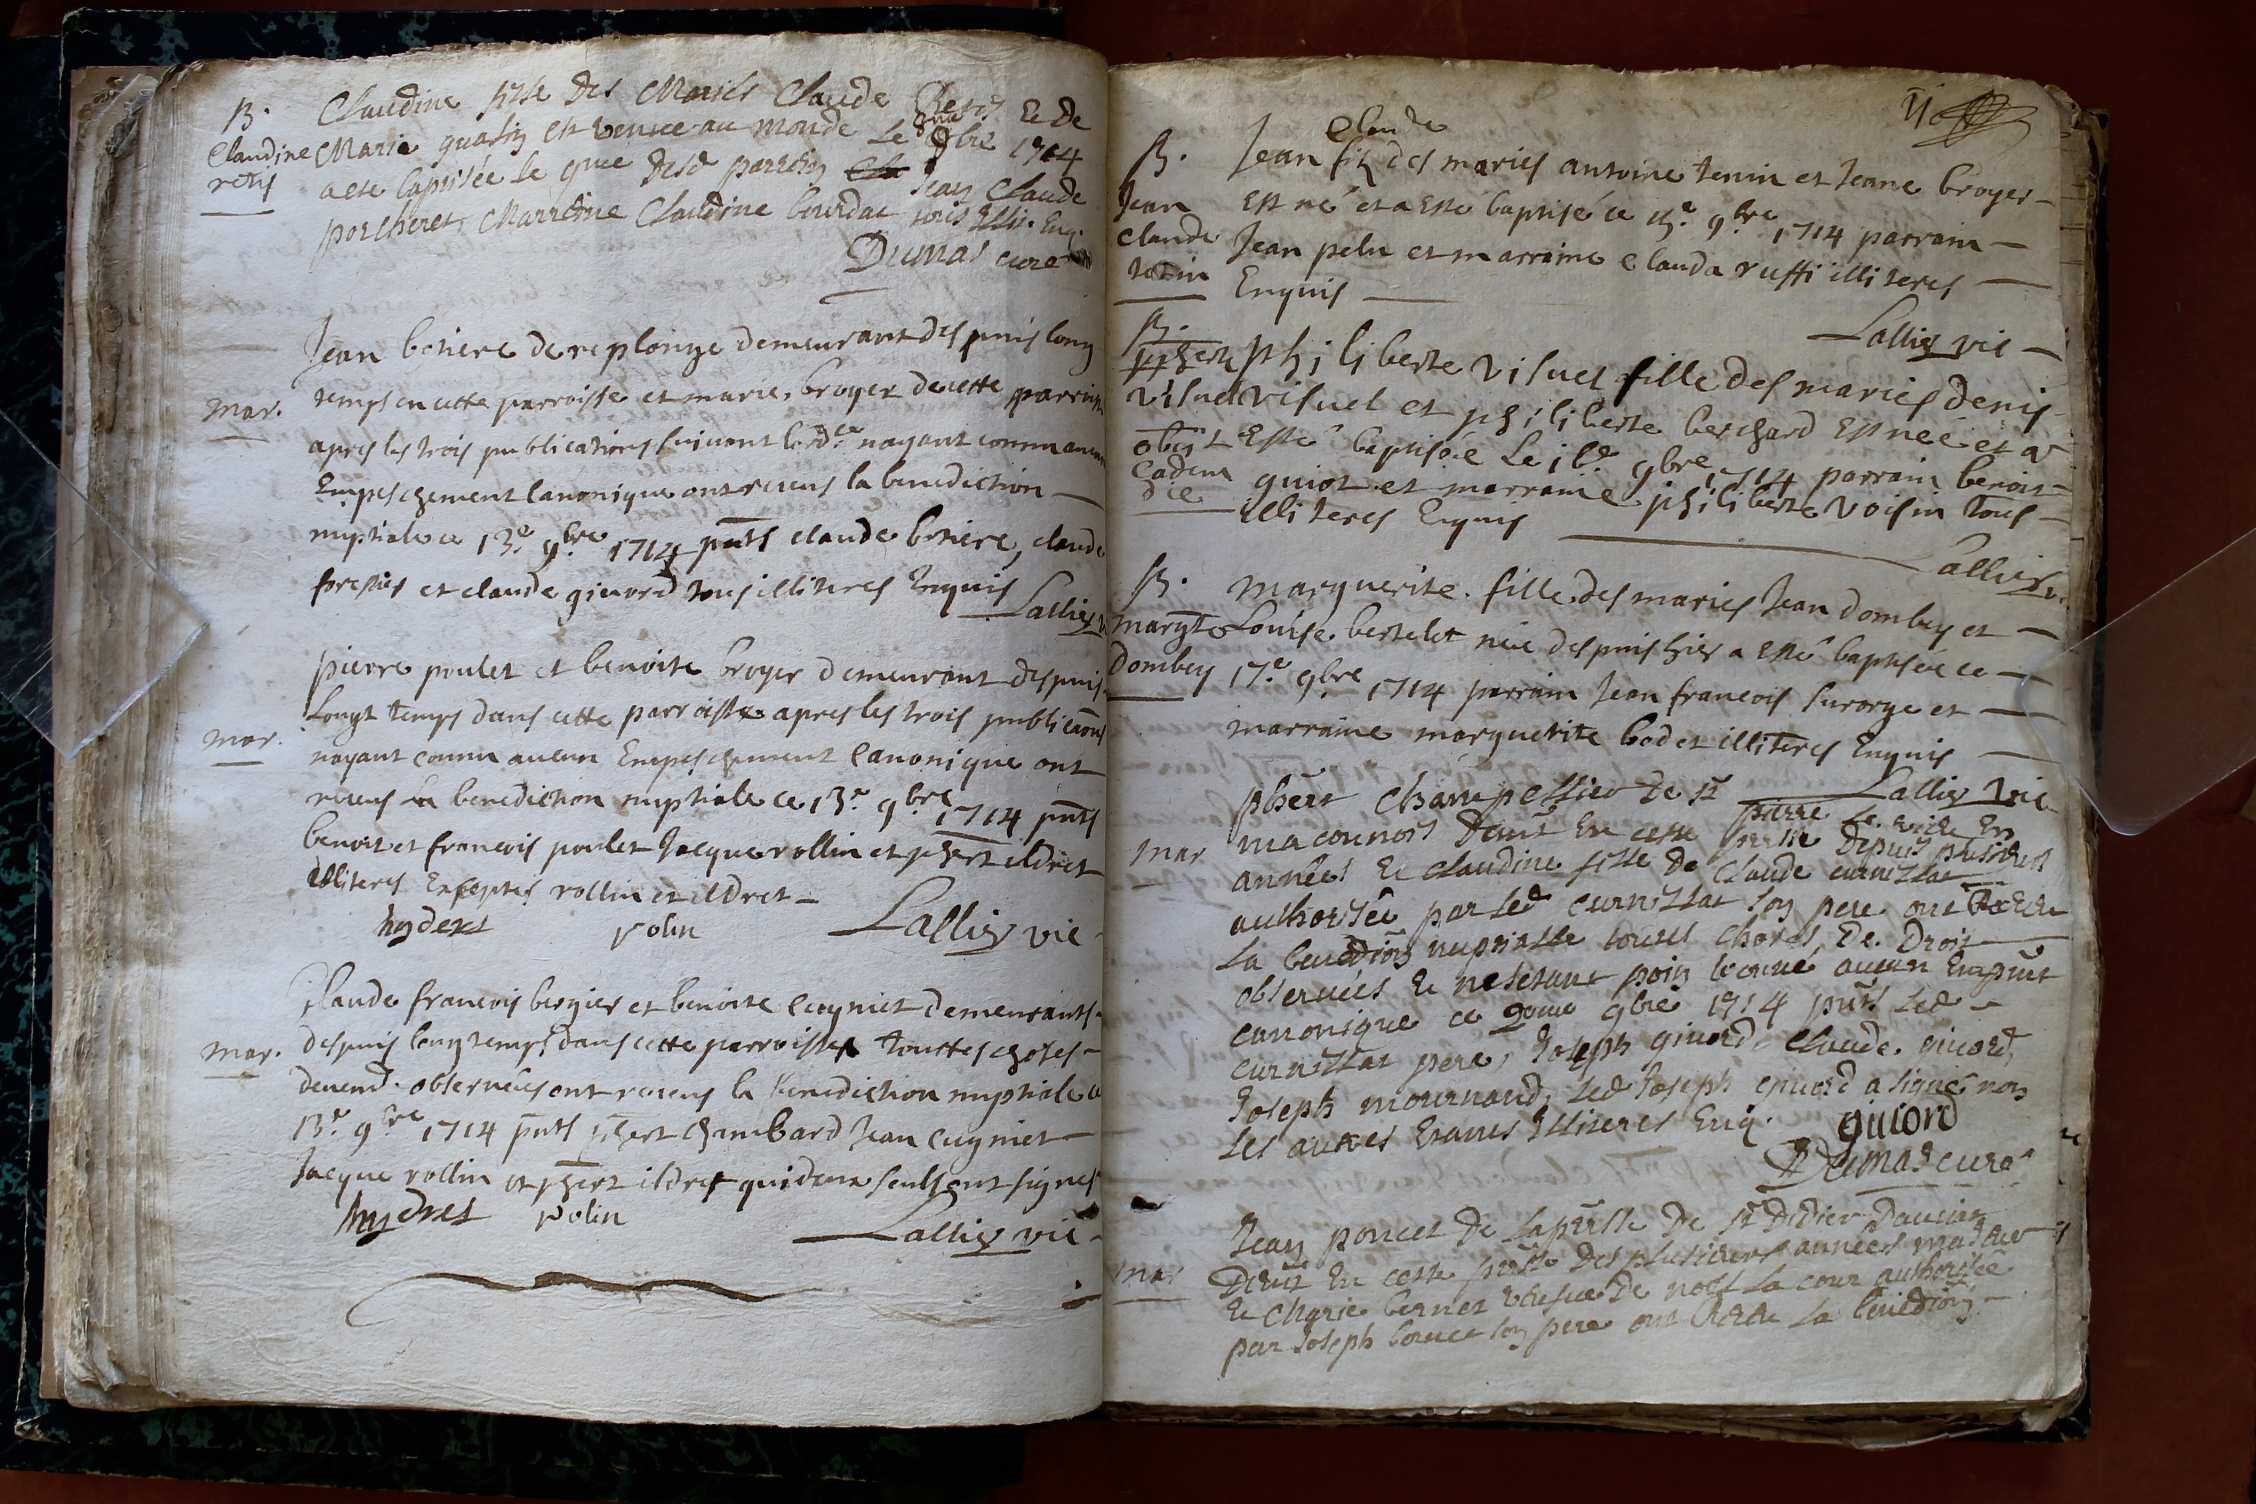 B. Claudine fille des Mariés Claude Retis Et De
Claudine Marie quatin est venue au monde Le 8me 9bre 1714
retis a ete baptisée le 9me desd parrein Jean Claude
porcheret, Marreine Claudine bourdat tous Illit. Enq.
Dumas curé
Jean botiere de replonge demeurant despuis long
mar. temps en cette parroisse et marie broyer de cette parroisse
apres les trois publications suivant lord.ce nayant connu aucun
Empeschement canonique ont receus la benediction
nuptiale ce 13.e 9bre 1714 pnts claude botiere, claude
forestier et claude givord tous illiteres Enquis
Lallier v
pierre poulet et benoite broyer demeurant despuis
Longt temps dans cette parroisse apres les trois publicaons
mar. nayant connu aucun Empeschement canonique ont
receus la benediction nuptiale ce 13.e 9bre 1714 pnts
benoit et francois poulet Jacque rollin et phert ildret
illiteres Exceptes rollin et ildret
hydret rolin Lallier vic
Claude francois bergier et benoite cugniet demeurants
mar. despuis long temps dans cette parroisse touttes choses
deuemt. observées ont receus la benediction nuptiale ce
13.e 9bre 1714 pnts phert chambard Jean cugniet
Jacque rollin et phert ildret qui deux seuls ont signes
hydret rolin
Lallier vic
11
claude
B. Jean fils des maries antoine tenin et Jeane broyer
Jean Est né et a Esté baptisé ce 15.e 9bre 1714 parrain
claude Jean pelu et marraine clauda ruffi illiteres
tenin Enquis
Lallier vic
B.
phberte philiberte visuel fille des maries denis
visuel visuel et philiberte berchard Est née et a
obijt Esté baptisée Le 16.e 9bre 1714 parrain benoit
eadem guiot et marraine philiberte voisin tous
die illiteres Enquis
Lallier v.
B. marguerite fille des maries Jean dombey et
margte Louise bertelet née despuis hier a Esté baptisée ce
Dombey 17.e 9bre 1714 parrain Jean francois Surorge et
marraine marguerite bodet illiteres Enquis
Lallier vic
phert Champellier de st pierre Le vieux En
maconnois demt En cette prsse depuis plusieurs
mar années Et Claudine fille de Claude curnillat
authorisée par led curnillat son pere ont Receu
La benedion nuptialle toutes choses de Droit
observées Et ne setant poin trouvé aucun Empnt
canonique ce 20me 9bre 1714 pnts led
curnillat pere, Joseph givord, Claude givord,
Joseph mournand, led Joseph givord a signé non
Les autres Etants Illiteres Enq.
guiord
Dumas curé
Jean poncet de la prsse de st Didier
mar Demt En cette prsse des plusieurs années
Et Marie bernet veufve de noel La cour authorisée
par Joseph son pere ont Receu La benedion